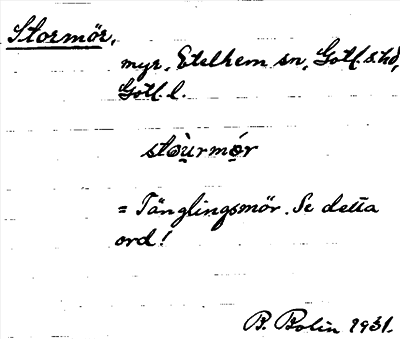 Stormör,
myr, Etelhem sn, Gotl. s. hd,
Gotl. l.
stòu̯rmǫ́r
= Tänglingsmör. Se detta
ord!
B. Bolin 1931.